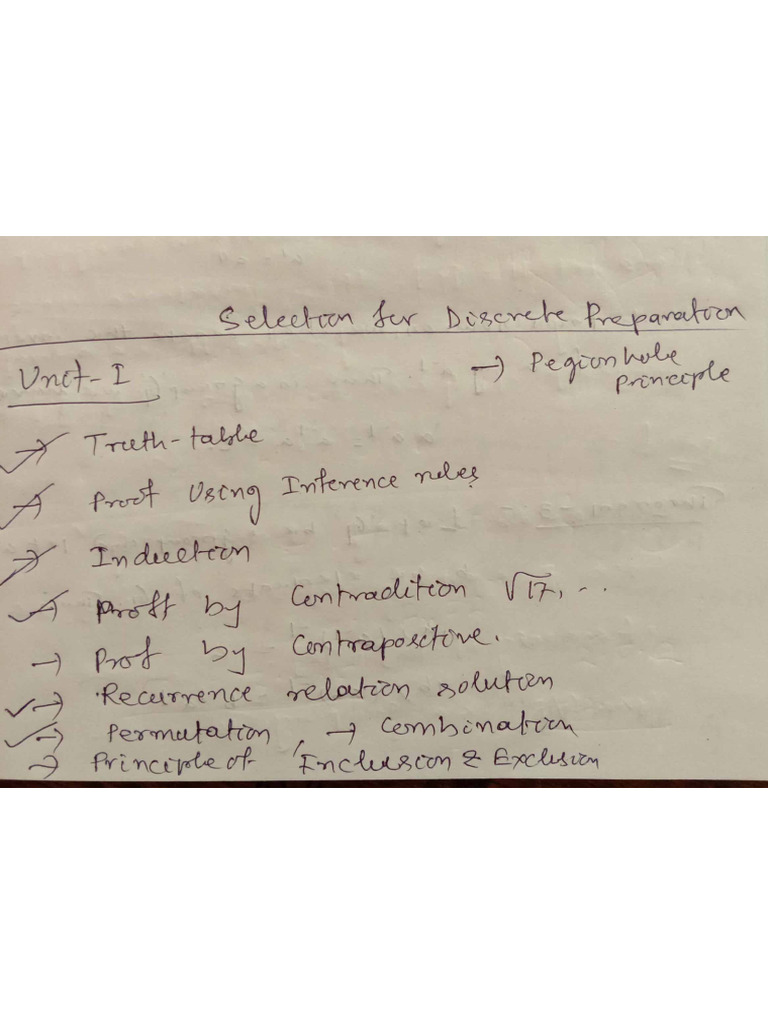 Selection for Discrete Preparation
Unit-I
→ Pegionhole
principle
→ Truth-table
→ Proof Using Inference rules
→ Induction
→ Proff by Contradition √17, ..
→ Prof by Contrapositive.
→ Recurrence relation solution
→ Permutation, → Combination
→ Principle of Inclusion & Exclusion